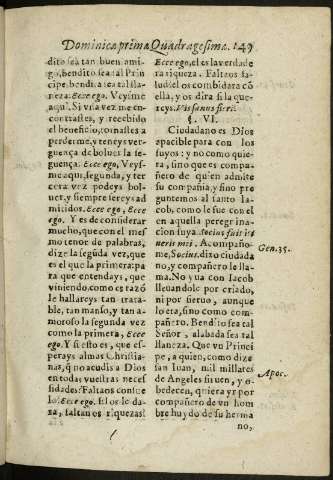 Dominica prima Quadragesima. 149
dito sea tan buen ami-
go, bendito sea tal Prin
cipe, bendita sea tal lla-
neza. Ecce ego. Veysme
aqui. Si vna vez me en-
contrastes, y recebido
el beneficio, tornastes a
perderme, y teneys ver-
guença de boluer la se-
guença. Ecce ego. Veys-
me aqui, segunda, y ter
cera vez podeys bol-
uer, y siempre sereys ad
mitidos. Ecce ego, Ecce
ego. Y es de considerar
mucho, que con el mes
mo tenor de palabras,
dize la segũda vez, que
es el que la primera: pa
ra que entendays, que
viniendo, como es razõ
le hallareys tan trata-
ble, tan manso, y tan a-
moroso la segunda vez
como la primera, Ecce
ego. Y si esto es, que es-
perays almas Christia-
nas, q̃ no acudis a Dios
en todas vuestras neces
sidades? Faltaos consue
lo? Ecce ego. El os le da-
ra, faltan os riquezas?
Ecce ego, el es la verdade
ra riqueza. Faltaos sa-
lud? el os combidara cõ
ella, y os dira si la que-
reys. Vis sanus fieri?
§. VI.
Ciudadano es Dios
apacible para con los
suyos: y no como quie-
ra, sino que es compa-
ñero de quien admite
su compañia, y sino pre
guntemos al santo Ia-
cob, como le fue con el
en aquella peregrina-
cion suya Socius fuit iti
neris mei. Acompaño-
me, Socius. dixo ciudada
no, y compañero le lla-
ma. No yua con Iacob
lleuandole por criado,
ni por sieruo, aunque
lo era, sino como com-
pañero. Bendito sea tal
Señor, alabada sea tal
llaneza. Que vn Princi
pe, a quien, como dize
san Iuan, mil millares
de Angeles siruen, y o-
bedecen, quiera yr por
compañero de vn hom
bre huydo de su herma
no,
Gen. 35.
Apoc.